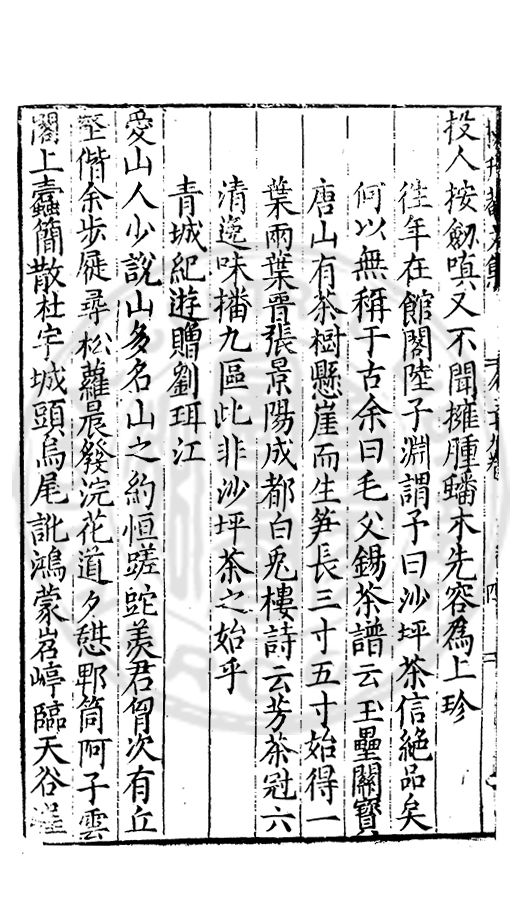 投人按劔嗔又不聞擁腫蟠木先容爲上珍
徃年在館閣陸子淵謂予曰沙坪茶信絶品矣
何以無稱于古余曰毛父錫茶譜云玉壘關寳
唐山有茶樹懸崖而生笋長三寸五寸始得一
葉兩葉晋張景陽成都白兎樓詩云芳茶冠六
清溢味播九區此非沙坪茶之始乎
青城紀遊贈劉珥江
愛山人少說山多名山之約恒蹉跎羡君胷次有丘
壑偕余步屣尋松蘿晨發浣花道夕憇郫筒阿子雲
閣上蠹簡散杜宇城頭烏尾訛鴻蒙岧嵉臨天谷